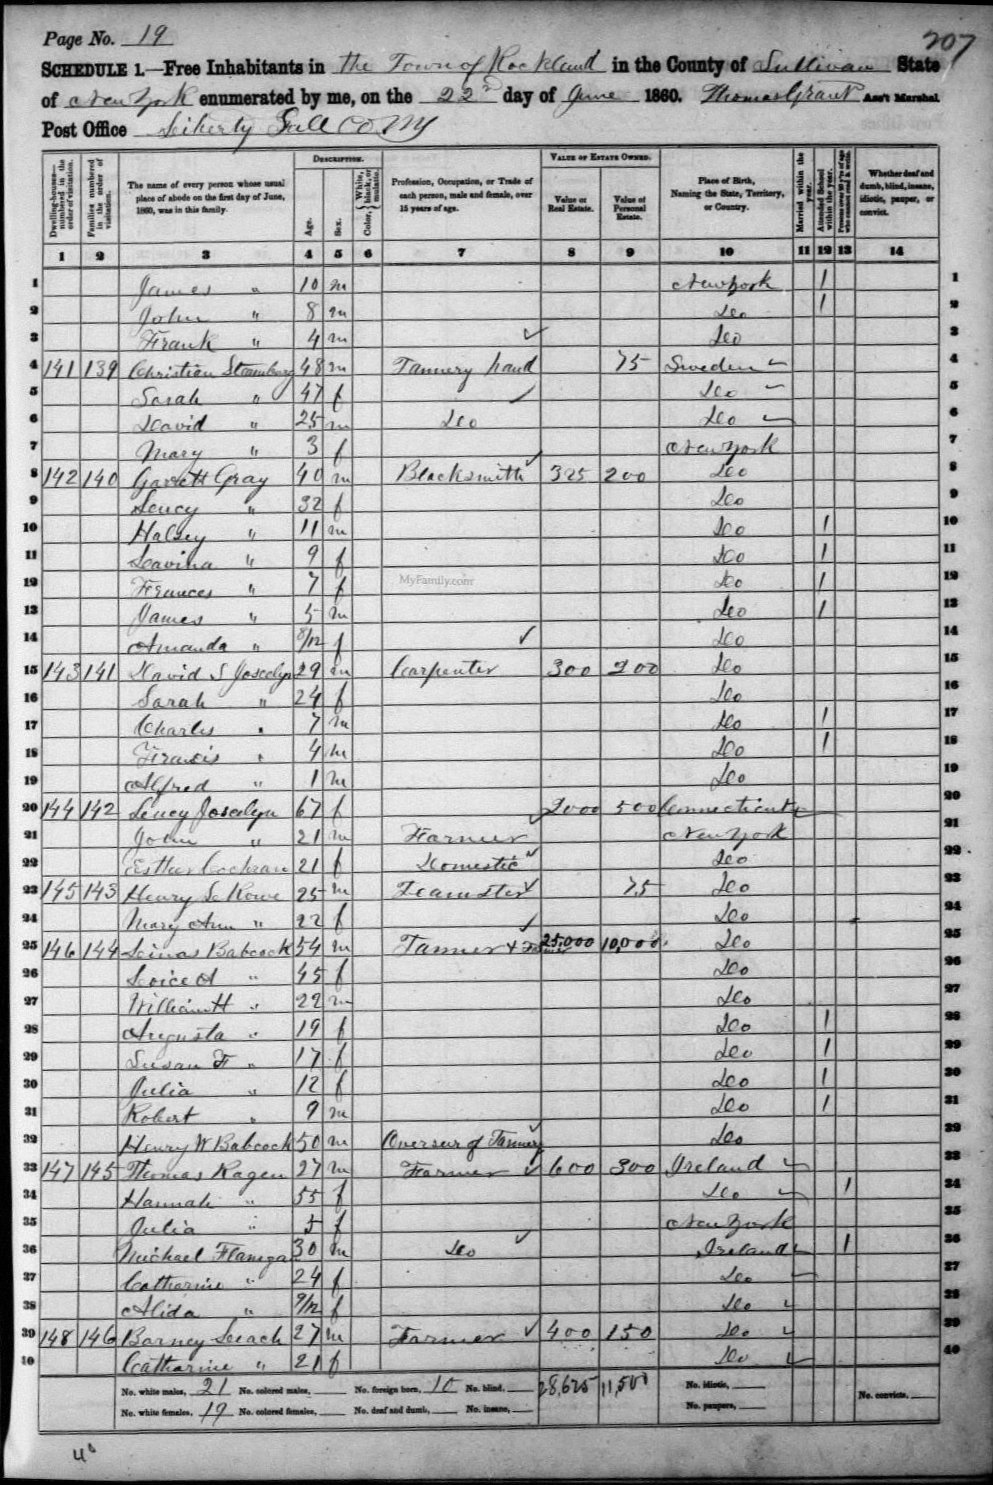 Page No. 19
207
SCHEDULE 1.—Free Inhabitants in the Town of Rockland in the County of Sullivan State
of New York enumerated by me, on the 22d day of June 1860. Thomas Grant Ass't Marshal
Post Office Liberty Sull Co NY
DESCRIPTION.
VALUE OF ESTATE OWNED.
Dwelling-houses—numbered in the order of visitation.
Families numbered in the order of visitation.
The name of every person whose usual place of abode on the first day of June, 1860, was in this family.
Age.
Sex.
Color, {White, black, or mulatto.
Profession, Occupation, or Trade of each person, male and female, over 15 years of age.
Value of Real Estate.
Value of Personal Estate.
Place of Birth, Naming the State, Territory, or Country.
Married within the year.
Attended School within the year.
Persons over 20 y'rs of age who cannot read & write.
Whether deaf and dumb, blind, insane, idiotic, pauper, or convict.
1 2 3 4 5 6 7 8 9 10 11 12 13 14
1 James " 10 m New York 1 1
2 John " 8 m Do 1 2
3 Frank " 4 m Do 3
4 141 139 Christian 48 m Tannery hand 75 Sweden 4
5 Sarah " 47 f Do 5
6 David " 25 m Do Do 6
7 Mary " 3 f New York 7
8 142 140 Garrett Gray 40 m Blacksmith 325 200 Do 8
9 Lucy " 32 f Do 9
10 Halsey " 11 m Do 1 10
11 Lavina " 9 f Do 1 11
12 Frances " 7 f Do 1 12
MyFamily.com
13 James " 5 m Do 1 13
14 Amanda " 8/12 f Do 14
15 143 141 David S Joscelyn 29 m Carpenter 300 200 Do 15
16 Sarah " 24 f Do 16
17 Charles " 7 m Do 1 17
18 Francis " 4 m Do 1 18
19 Alfred " 1 m Do 19
20 144 142 Lucy Joscelyn 67 f 2000 500 Connecticut 20
21 John " 21 m Farmer New York 21
22 Esther Cochran 21 f Domestic Do 22
23 145 143 Henry L Rowe 25 m Teamster 75 Do 23
24 Mary Ann " 22 f Do 24
25 146 144 Linas Babcock 54 m Tanner + Farmer 25,000 10,000 Do 25
26 Loice A " 45 f Do 26
27 William H " 22 m Do 27
28 Augusta " 19 f Do 1 28
29 Susan F " 17 f Do 1 29
30 Julia " 12 f Do 1 30
31 Robert " 9 m Do 1 31
32 Henry W Babcock 50 m Overseer of Tannery Do 32
33 147 145 Thomas Ragen 27 m Farmer 600 300 Ireland 33
34 Hannah " 55 f Do 1 34
35 Julia " 5 f New York 35
36 Michael Flanegan 30 m Do Ireland 1 36
37 Catharine " 24 f Do 37
38 Alida " 9/12 f Do 38
39 148 146 Barney Leeach 27 m Farmer 400 150 Do 39
40 Catharine " 21 f Do 40
No. white males, 21 No. colored males, No. foreign born, 10 No. blind, 28,625 11,500 No. idiotic,
No. white females, 19 No. colored females, No. deaf and dumb, No. insane, No. paupers, No. convicts,